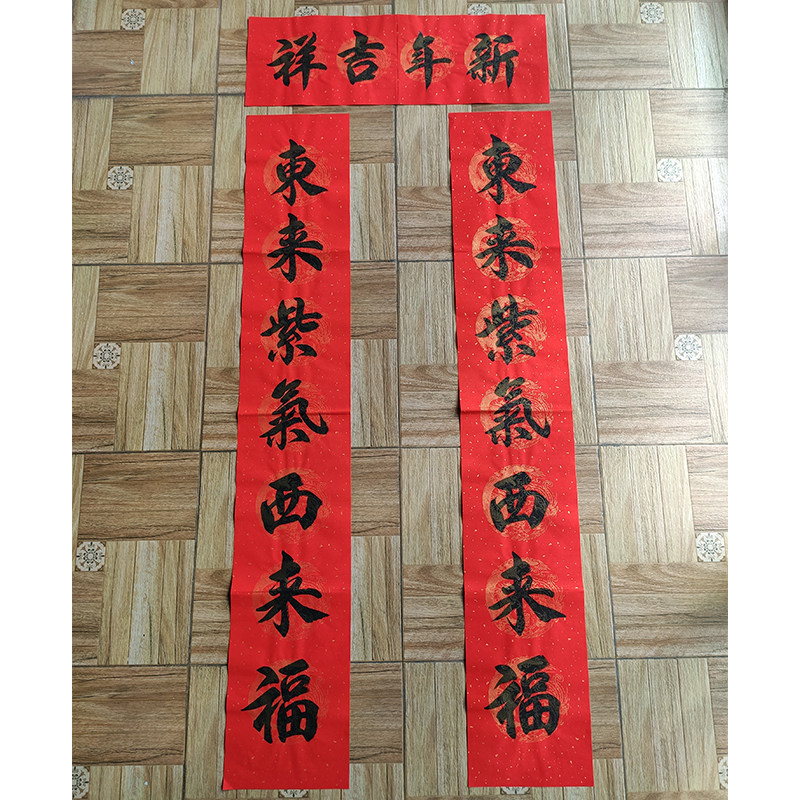 新年吉祥
東来紫氣西来福
東来紫氣西来福